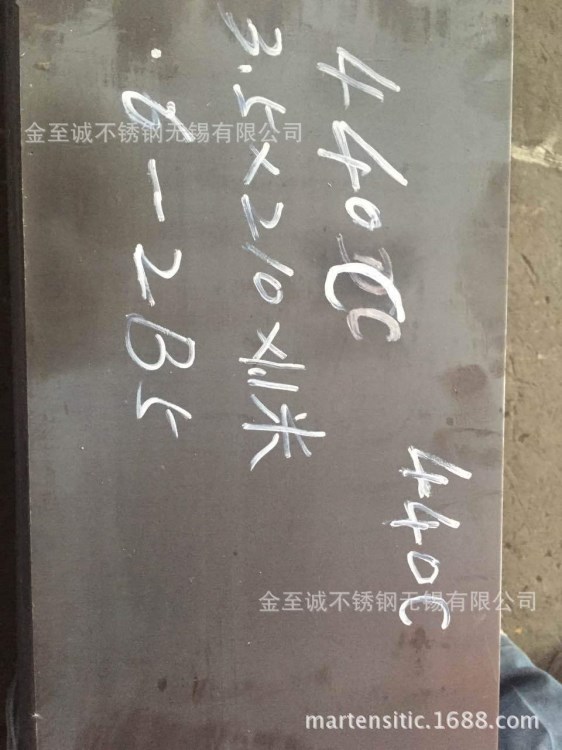 440C
3.5×210×1.1米
440C
金至诚不锈钢无锡有限公司
金至诚不锈钢无锡有限公司
martensitic.1688.com